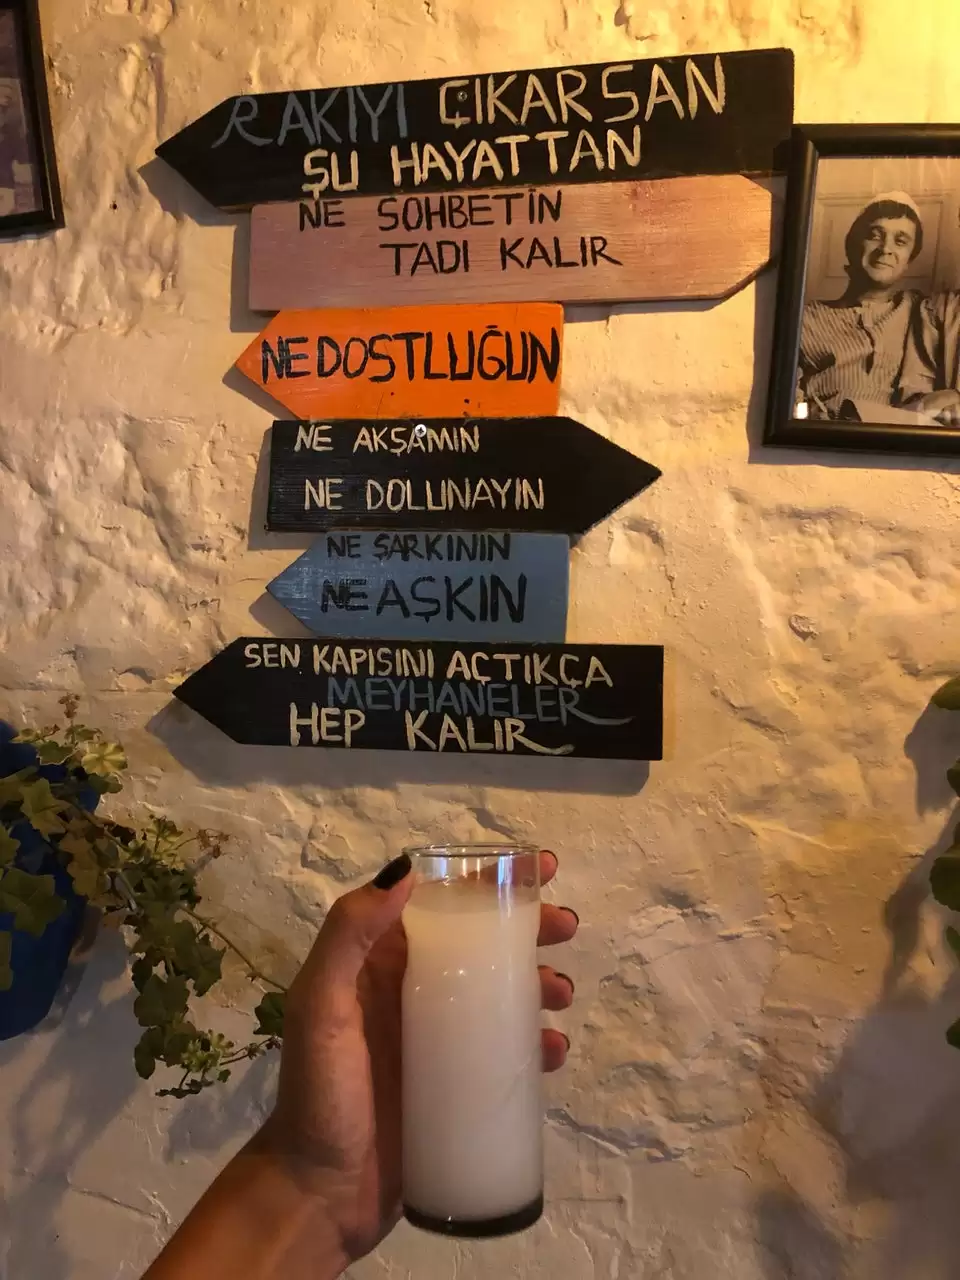 RAKIYI ÇIKARSAN
ŞU HAYATTAN
NE SOHBETİN
TADI KALIR
NE DOSTLUĞUN
NE AKŞAMIN
NE DOLUNAYIN
NE ŞARKININ
NE AŞKIN
SEN KAPISINI AÇTIKÇA
MEYHANELER
HEP KALIR